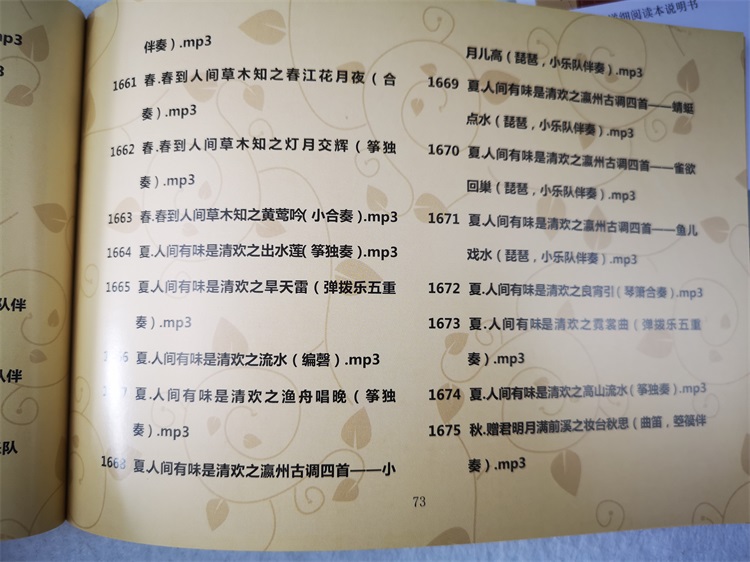 伴奏).mp3
1661 春.春到人间草木知之春江花月夜(合
奏).mp3
1662 春.春到人间草木知之灯月交辉(筝独
奏).mp3
1663 春.春到人间草木知之黄莺吟(小合奏).mp3
1664 夏.人间有味是清欢之出水莲(筝独奏).mp3
1665 夏.人间有味是清欢之旱天雷(弹拨乐五重
奏).mp3
夏.人间有味是清欢之流水(编磬).mp3
夏.人间有味是清欢之渔舟唱晚(筝独
奏).mp3
1668 夏.人间有味是清欢之瀛州古调四首——小
月儿高(琵琶,小乐队伴奏).mp3
1669 夏.人间有味是清欢之瀛州古调四首——蜻蜓
点水(琵琶,小乐队伴奏).mp3
1670 夏.人间有味是清欢之瀛州古调四首——雀欲
回巢(琵琶,小乐队伴奏).mp3
1671 夏.人间有味是清欢之瀛州古调四首——鱼儿
戏水(琵琶,小乐队伴奏).mp3
1672 夏.人间有味是清欢之良宵引(琴箫合奏).mp3
1673 夏.人间有味是清欢之霓裳曲(弹拨乐五重
奏).mp3
1674 夏.人间有味是清欢之高山流水(筝独奏).mp3
1675 秋.赠君明月满前溪之妆台秋思(曲笛,箜篌伴
奏).mp3
73
p3
队伴
队伴
乐队
详细阅读本说明书